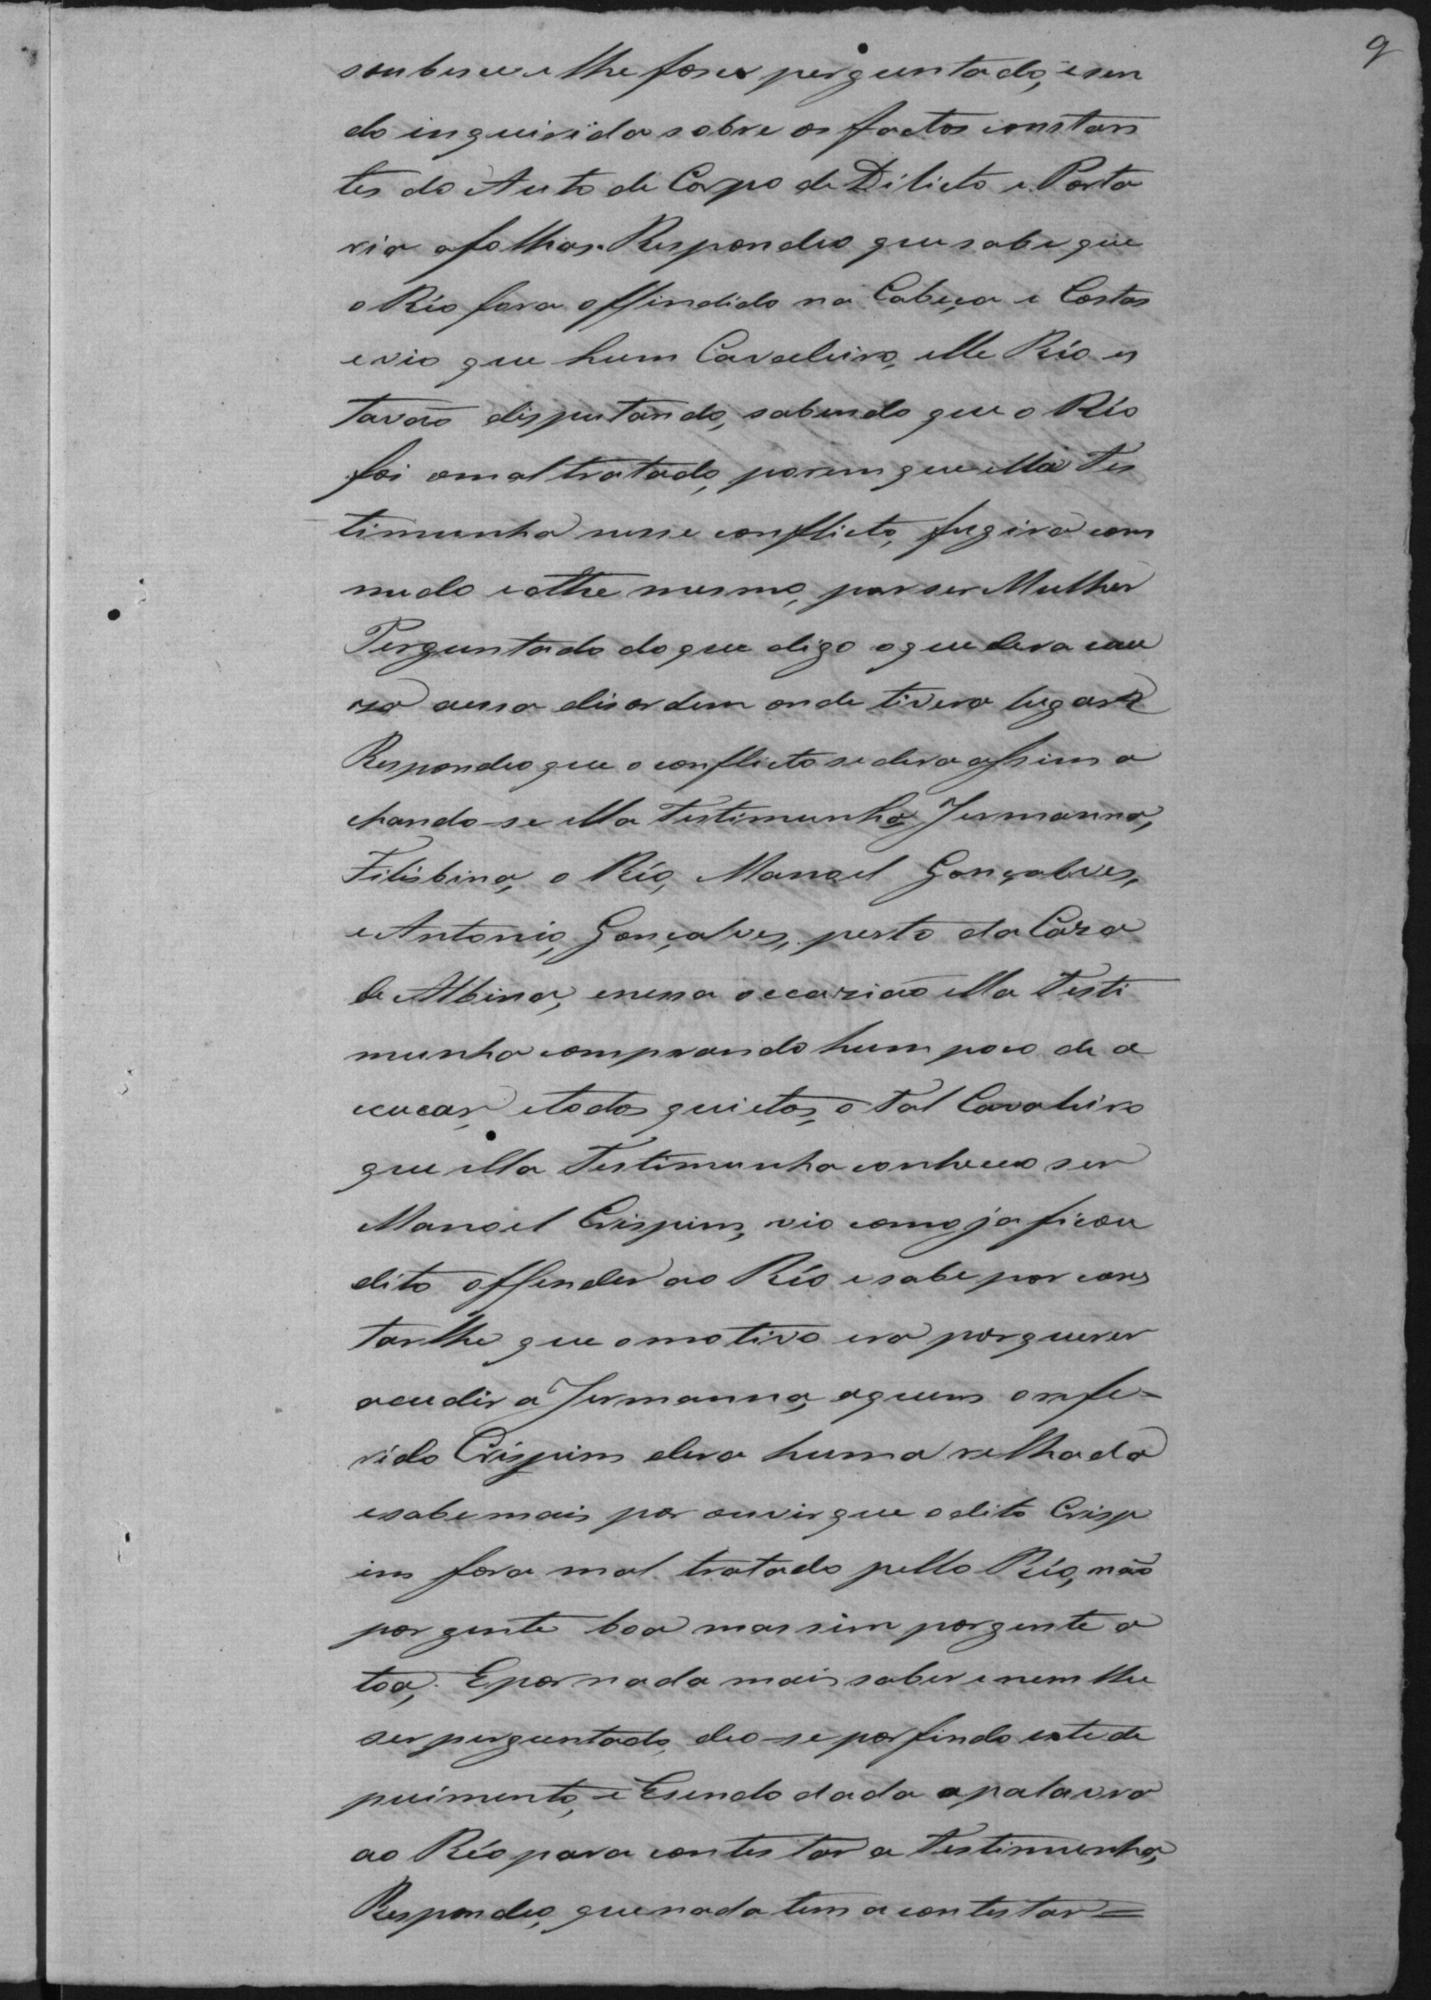 9
soubesse e lhe fosse perguntado, e sen
do inquirida sobre os factos constan
tes do Auto de Corpo de Dilicto e Porta
ria afolhas. Respondeo que sabe que
o Réo fora offindido na Cabeça e Costas
e vio que hum Cavaleiro, elle Réo es
tavão disputando, sabendo que o Réo
foi omaltratado, porem que ella Tes
timunha nesse conflicto, fugira com
mêdo e athe mesmo, por ser Mulher
Perguntado do que digo o que dera cau
za aessa disordem onde tivera lugar
Respondeo que o conflicto se dera assim a
chando-se ella Testimunha, Jermanna,
Filisbina, o Réo, Manoel Gonçalves,
e Antonio, Gonçalves, perto da Caza
de Albina, enessa occazião ella Testi
munha comprando hum poco de a
çucar, etodos quietos, o tal Cavaleiro
que ella Testimunha conheceo ser
Manoel Crispim, vio como ja ficou
dito offender ao Réo e sabe por cons
tarlhe que omotivo era por querer
acudir a Jermanna, aquem o refe-
rido Crispim dera huma relhada
esabe mais por ouvir que o dito Crisp
im fora mal tratado pello Réo, não
por gente boa mas sim por gente a
toa, E por nada mais saber e nem lhe
ser perguntado, deo-se por findo este de
puimento, e Esendo dada apalavra
ao Réo para contestar a Testimunha,
Respondeo, que nada tem a contestar =